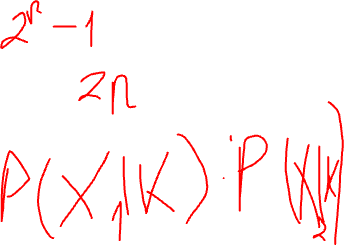 2ⁿ - 1
2n
P(X₁|K) · P(X₂|K)